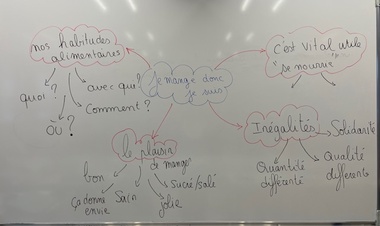 nos habitudes
alimentaires
quoi?
où?
avec qui?
Comment?
je mange donc
je suis
c'est vital, utile
"se nourrir"
Inégalités
Solidarité
Quantité
différente
Qualité
différente
le plaisir
de manger
bon
ça donne
envie
Sain
Sucré/salé
jolie